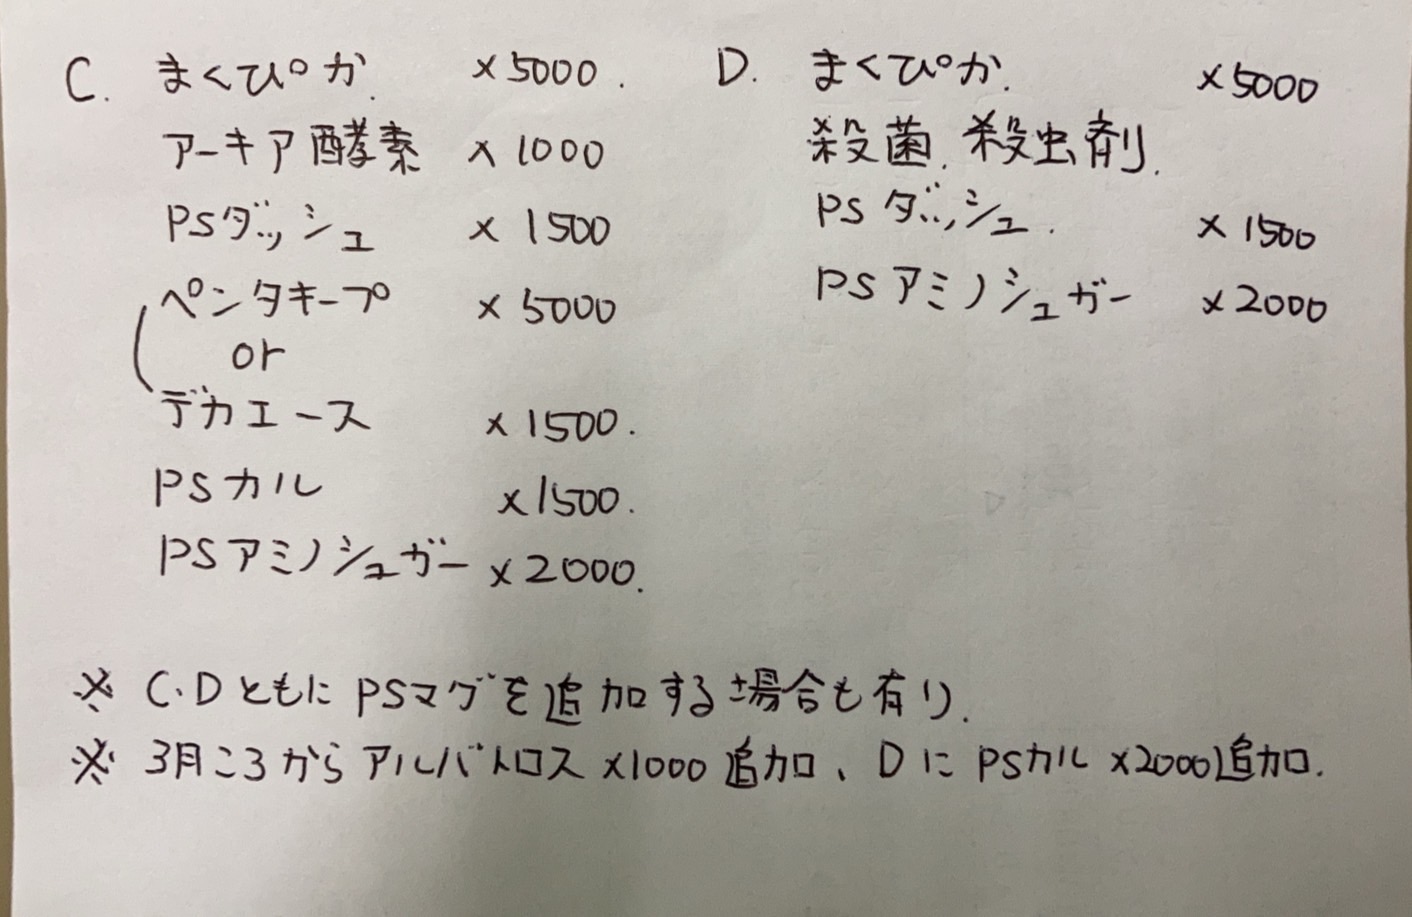 C. まくぴか. ×5000.
アーキア酵素 ×1000
PSダッシュ ×1500
ペンタキープ ×5000
or
デカエース ×1500.
PSカル ×1500.
PSアミノシュガー ×2000.
D. まくぴか. ×5000
殺菌、殺虫剤.
PSダッシュ. ×1500
PSアミノシュガー ×2000
※ C・DともにPSマグを追加する場合も有り.
※ 3月ころからアルバトロス×1000追加、DにPSカル×2000追加.